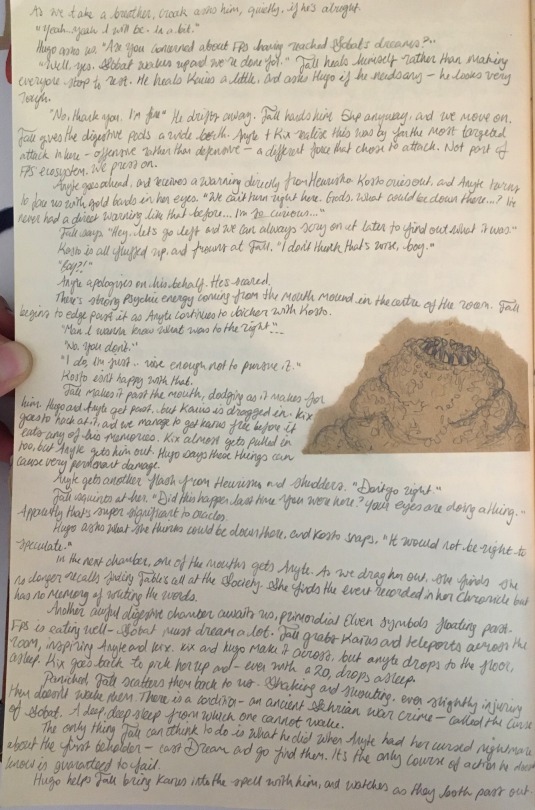 As we take a breather, Croak asks him, quietly, if he's alright.
"Yeah. yeah I will be. In a bit."
Hugo asks us. "Are you concerned about FPS having reached Slobat's dreams?"
"Well, yes. Slobat wakes up and we're done for." Fall heals himself rather than making
everyone stop to rest. He heals Karus a little, and asks Hugo if he needs any - he looks very
rough.
"No, thank you. I'm fine" He drifts away. Fall hands him anyway, and we move on.
Fall gives the digestive pods a wide berth. Anyte + Kix realise this was by far the most targeted
attack in here - offensive rather than defensive - a different force that chose to attack. Not part of
FPS ecosystem. We press on.
Anyte goes ahead, and receives a warning directly from Heurismo. Kosto cries out, and Anyte turns
to face us with gold bands in her eyes. "We can't turn right here. Gods, what could be down there...? I've
never had a direct warning like that before... I'm so curious..."
Fall says "Hey, let's go left and we can always scry on it later to find out what it was"
Kosto is all fluffed up, and frowns at Fall. "I don't think that's wise, boy."
"Boy?!"
Anyte apologises on his behalf. He's scared.
There's strong psychic energy coming from the mouth mound in the centre of the room. Fall
begins to edge past it as Anyte continues to bicker with Kosto.
"Man I wanna know what was to the right"...
"No. you don't."
"I do, I'm just.. wise enough not to pursue it."
Kosto isn't happy with that.
Fall makes it past the mouth, dodging as it makes for
him. Hugo and Anyte get past.. but Karus is dragged in. Kix
goes to hack at it, and we manage to get Karus free before it
eats any of his memories. Kix almost gets pulled in
too, but Anyte gets him out. Hugo says these things can
cause very permanent damage.
Anyte gets another flash from Heurismo and shudders. "Don't go right."
Fall squints at her. "Did this happen last time you were here? your eyes are doing a thing."
Apparently that's super significant to oracles.
Hugo asks what she thinks could be down there, and Kosto snaps, "It would not be right to
speculate."
In the next chamber, one of the mouths gets Anyte. As we drag her out, she finds she
no longer recalls finding Fable's all at the Society. She finds the event recorded in her chronicle but
has no memory of writing the words.
Another awful digestive chamber awaits us, primordial Elven symbols floating past.
FPS is eating well - Slobat must dream a lot. Fall grabs Karus and teleports across the
room, inspiring Anyte and Kix. Kix and Hugo make it across, but Anyte drops to the floor,
asleep. Kix goes back to pick her up and - even with a 20, drops asleep.
Panicked Fall scatters them back to us. Shaking and shouting, even slightly injuring
them doesn't wake them. There is a condition - an ancient war crime - called the Curse
of Slobat. A deep, deep sleep from which one cannot wake.
The only thing Fall can think to do is what he did when Anyte had her cursed nightmare
about the first beholder - cast Dream and go find them. It's the only course of action he doesn't
know is guaranteed to fail.
Hugo helps Fall bring Karus into the spell with him, and watches as they both pass out.